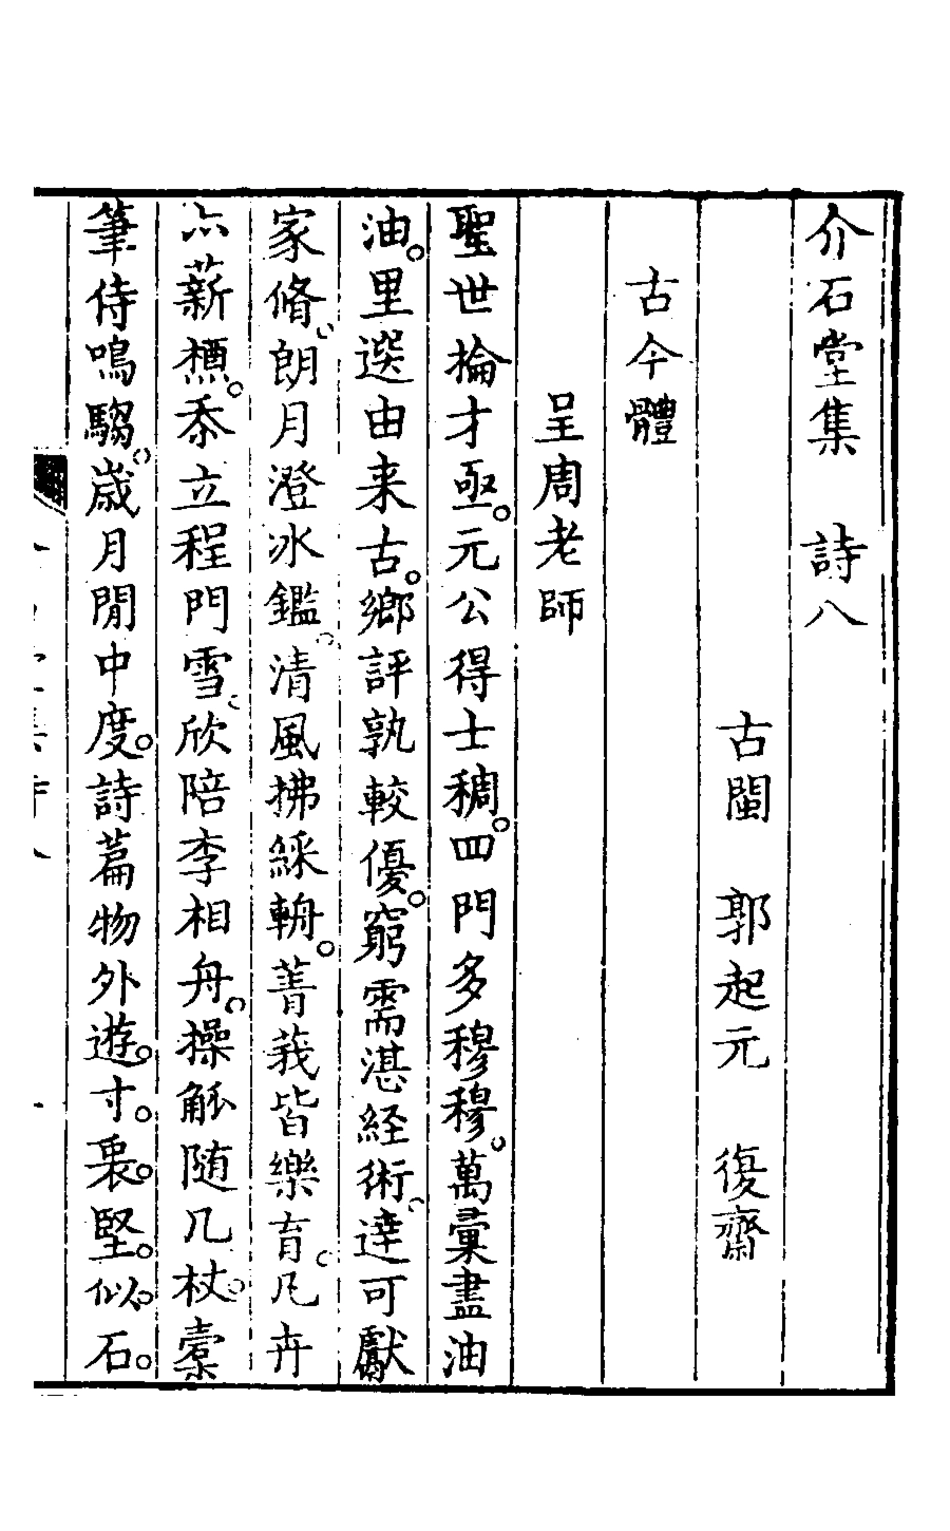 介石堂集　詩八
古閩　郭起元　復齋
古今體
呈周老師
聖世掄才亟。元公得士稠。四門多穆穆。萬彙盡油
油。里選由来古。鄉評孰較優。窮需湛経術。達可獻
家脩。朗月澄冰鑑。清風拂綵輈。菁莪皆樂育。凡卉
亦薪槱。忝立程門雪。欣陪李相舟。操觚随几杖。槖
筆侍鳴騶。歳月閒中度。詩篇物外遊。寸。裏。堅。似。石。